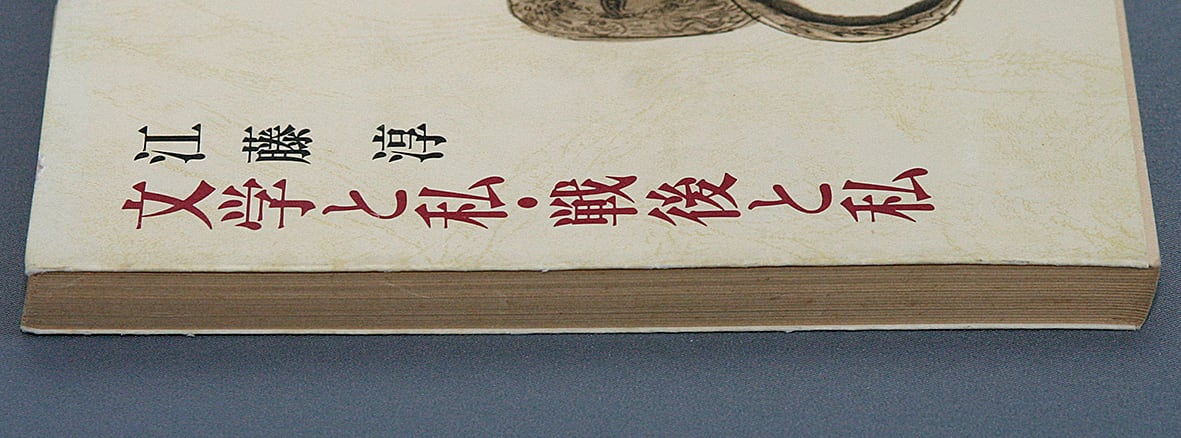 江藤淳
文学と私・戦後と私